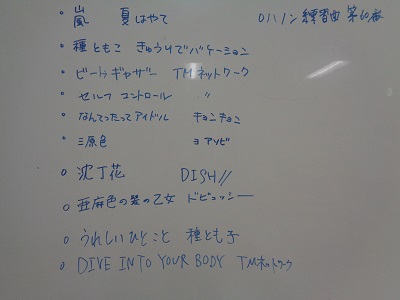 ・嵐 夏はやて
○ハノン練習曲 第60番
・種ともこ きゅうりでバケーション
・ビートギャザー TMネットワーク
・セルフコントロール 〃
・なんてったってアイドル キョンキョン
・三原色 ヨアソビ
○ 沈丁花 DISH//
○ 亜麻色の髪の乙女 ドビュッシー
○ うれしいひとこと 種とも子
○ DIVE INTO YOUR BODY TMネットワーク